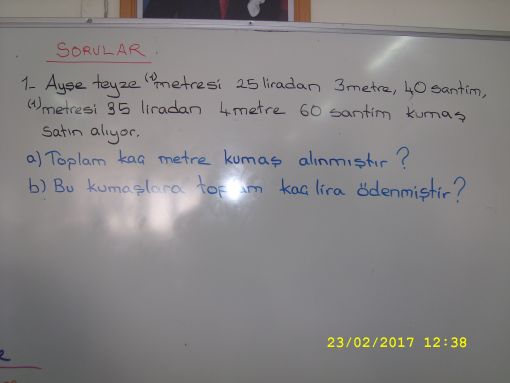 SORULAR.
1- Ayşe teyze (1)metresi 25 liradan 3 metre, 40 santim,
(1)metresi 35 liradan 4 metre 60 santim kumaş
satın alıyor.
a) Toplam kaç metre kumaş alınmıştır?
b) Bu kumaşlara toplam kaç lira ödenmiştir?
23/02/2017 12:38